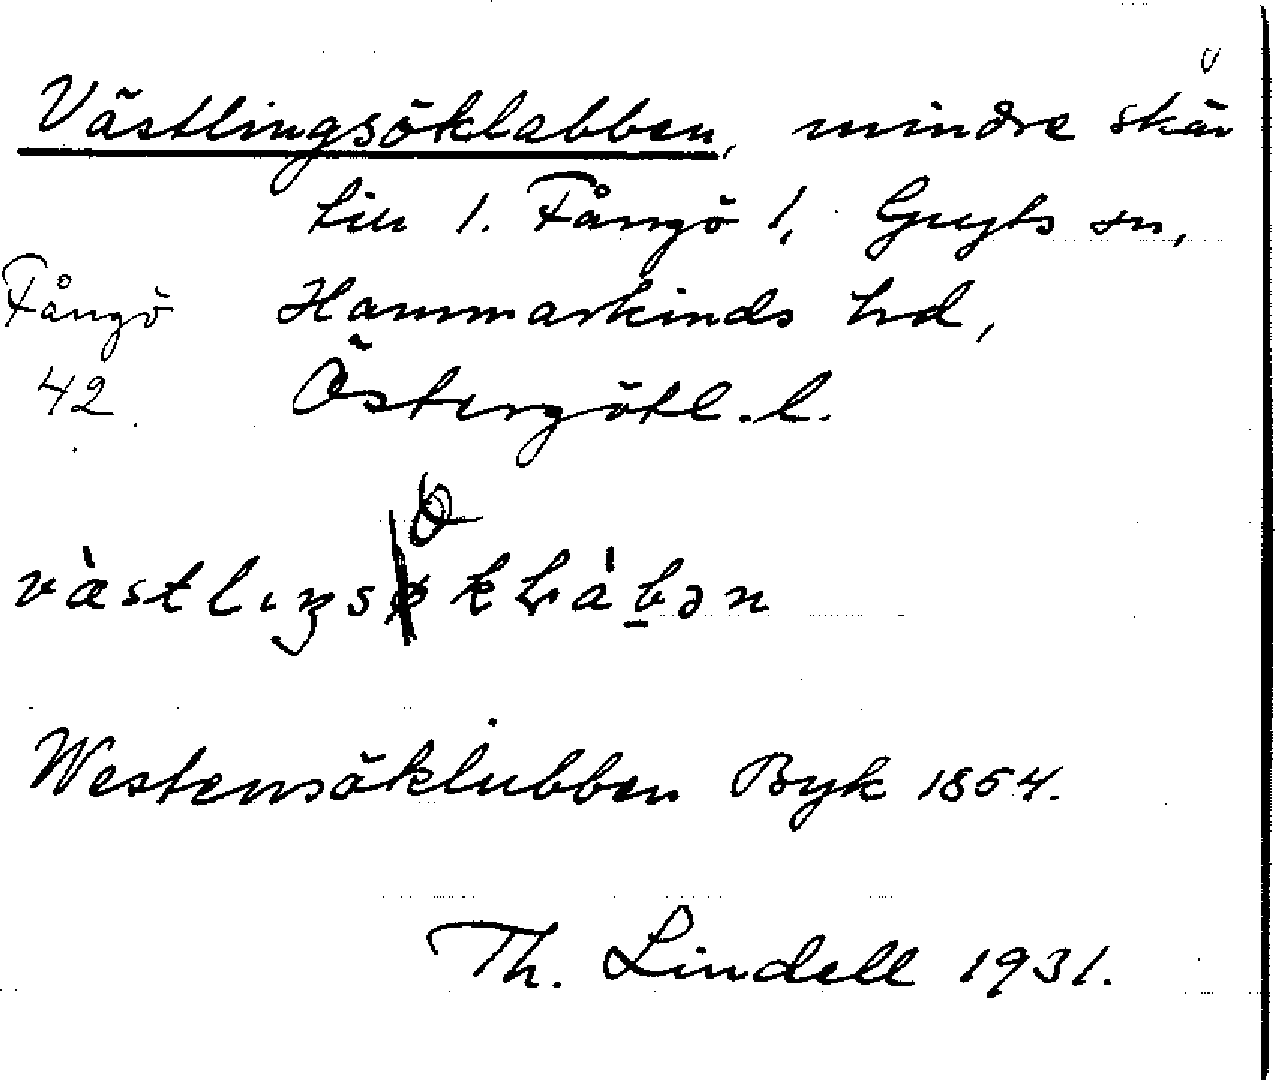 v
Västlingsöklabben, mindre skär
till 1. Fångö 1, Gryts sn,
Fångö Hammarkinds hd,
42 Östergötl. l.
västlıŋs kḷàbən
Westensöklubben Byk 1854.
Th. Lindell 1931.